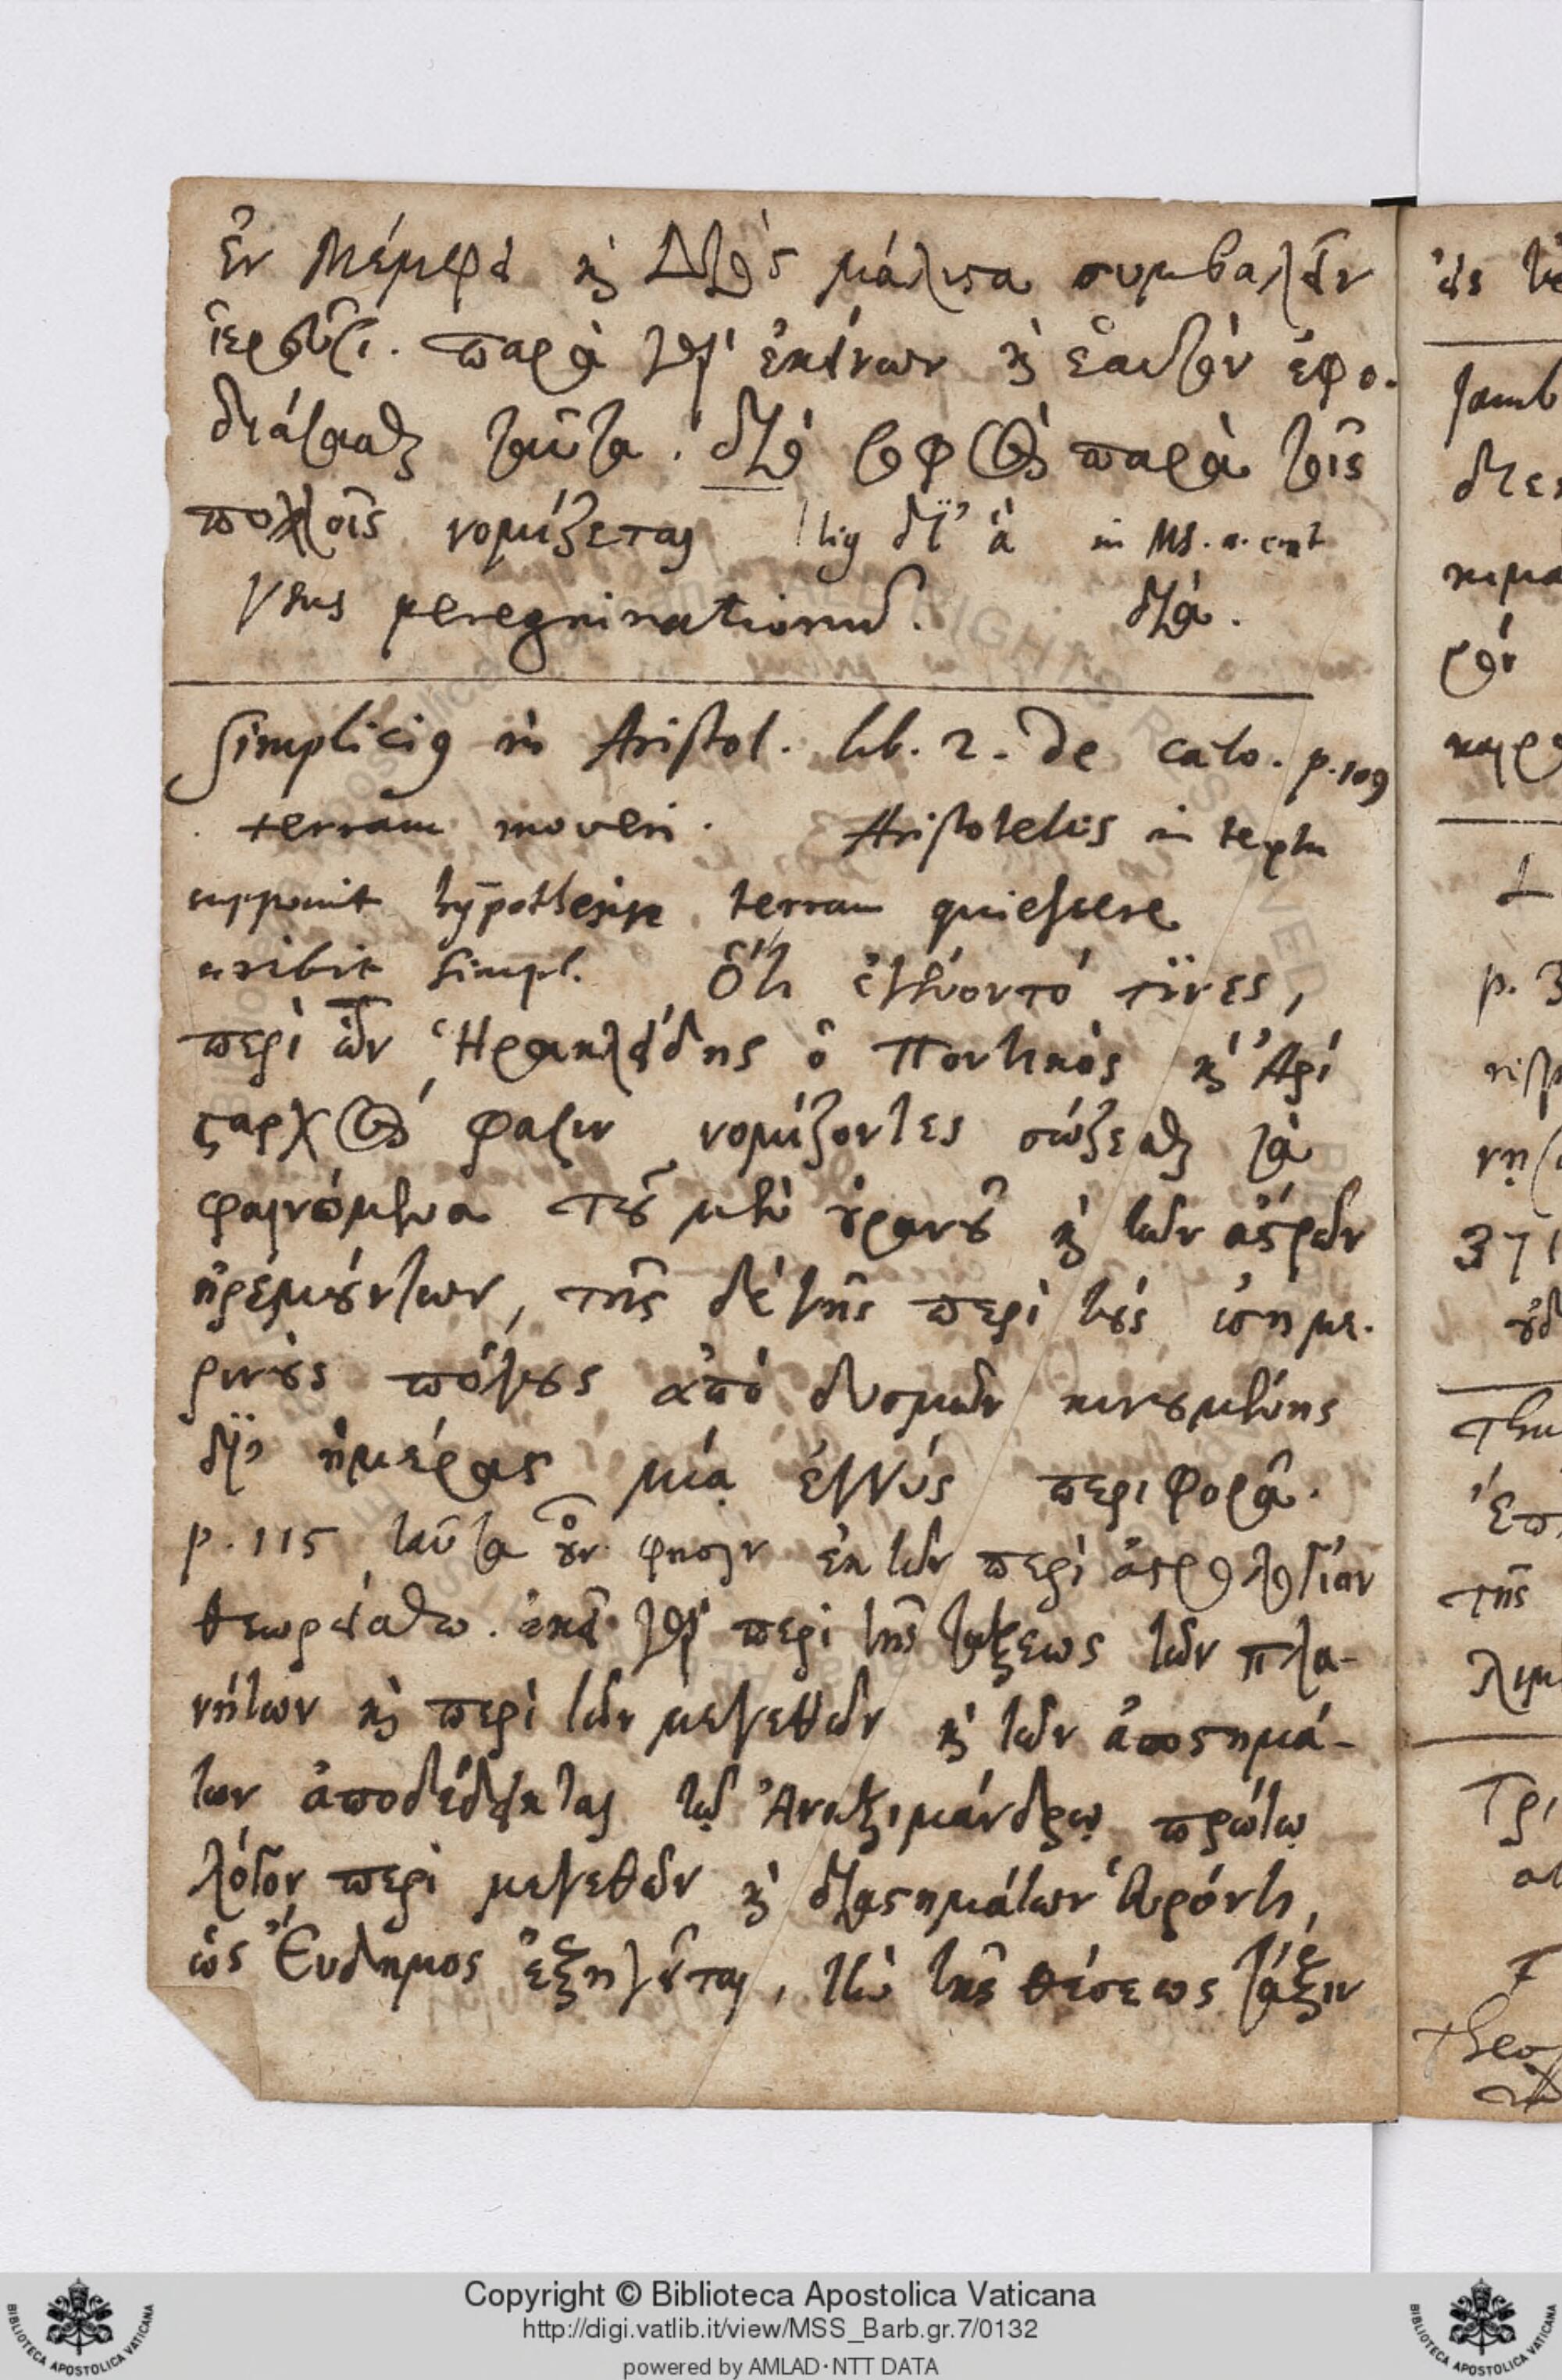 ἐν Μέμφει καὶ Διὸς μάλιστα συμβαλεῖν
ἱερεῦσι. παρὰ γὰρ ἐκείνων καὶ ἑαυτὸν ἐφο-
διάσασθαι ταῦτα. διὸ σοφὸς παρὰ τοῖς
πολλοῖς νομίζεται lig δι' ἃ in MS. a. erat
Usus peregrinationum. διὰ.
Simplicius in Aristol. lib. 2. De cælo. p. 109
terram moveri. Aristoteles in textu
supponit hypothesin terram quiescere
scribit Simpl. Ὅτι ἐγένοντό τινες,
περὶ ὧν Ἡρακλείδης ὁ Ποντικὸς καὶ Ἀρί
σταρχος φασιν νομίζοντες σώζεσθαι τὰ
φαινόμενα τοῦ μὲν οὐρανοῦ καὶ τῶν ἄστρων
ἠρεμούντων, τῆς δὲ γῆς περὶ τοὺς ἰσημε-
ρινοὺς πόλους ἀπὸ δυσμῶν κινουμένης
δι' ἡμέρας μιᾷ ἐγγύς περιφορᾷ.
p. 115 ταῦτα οὖν φησιν ἐκ τῶν περὶ ἀστρολογίαν
θεωρείσθω. ἐκεῖ γὰρ περὶ τῆς τάξεως τῶν πλα-
νήτων καὶ περὶ τῶν μεγεθῶν καὶ τῶν ἀποστημά-
των ἀποδέδεικται τῷ Ἀναξιμάνδρῳ πρώτῳ
λόγον περὶ μεγεθῶν καὶ διαστημάτων εὑρόντι,
ὡς Εὔδημος ἐξηγεῖται, τὴν τῆς θέσεως τάξιν
Copyright © Biblioteca Apostolica Vaticana
http://digi.vatlib.it/view/MSS_Barb.gr.7/0132
powered by AMLAD·NTT DATA